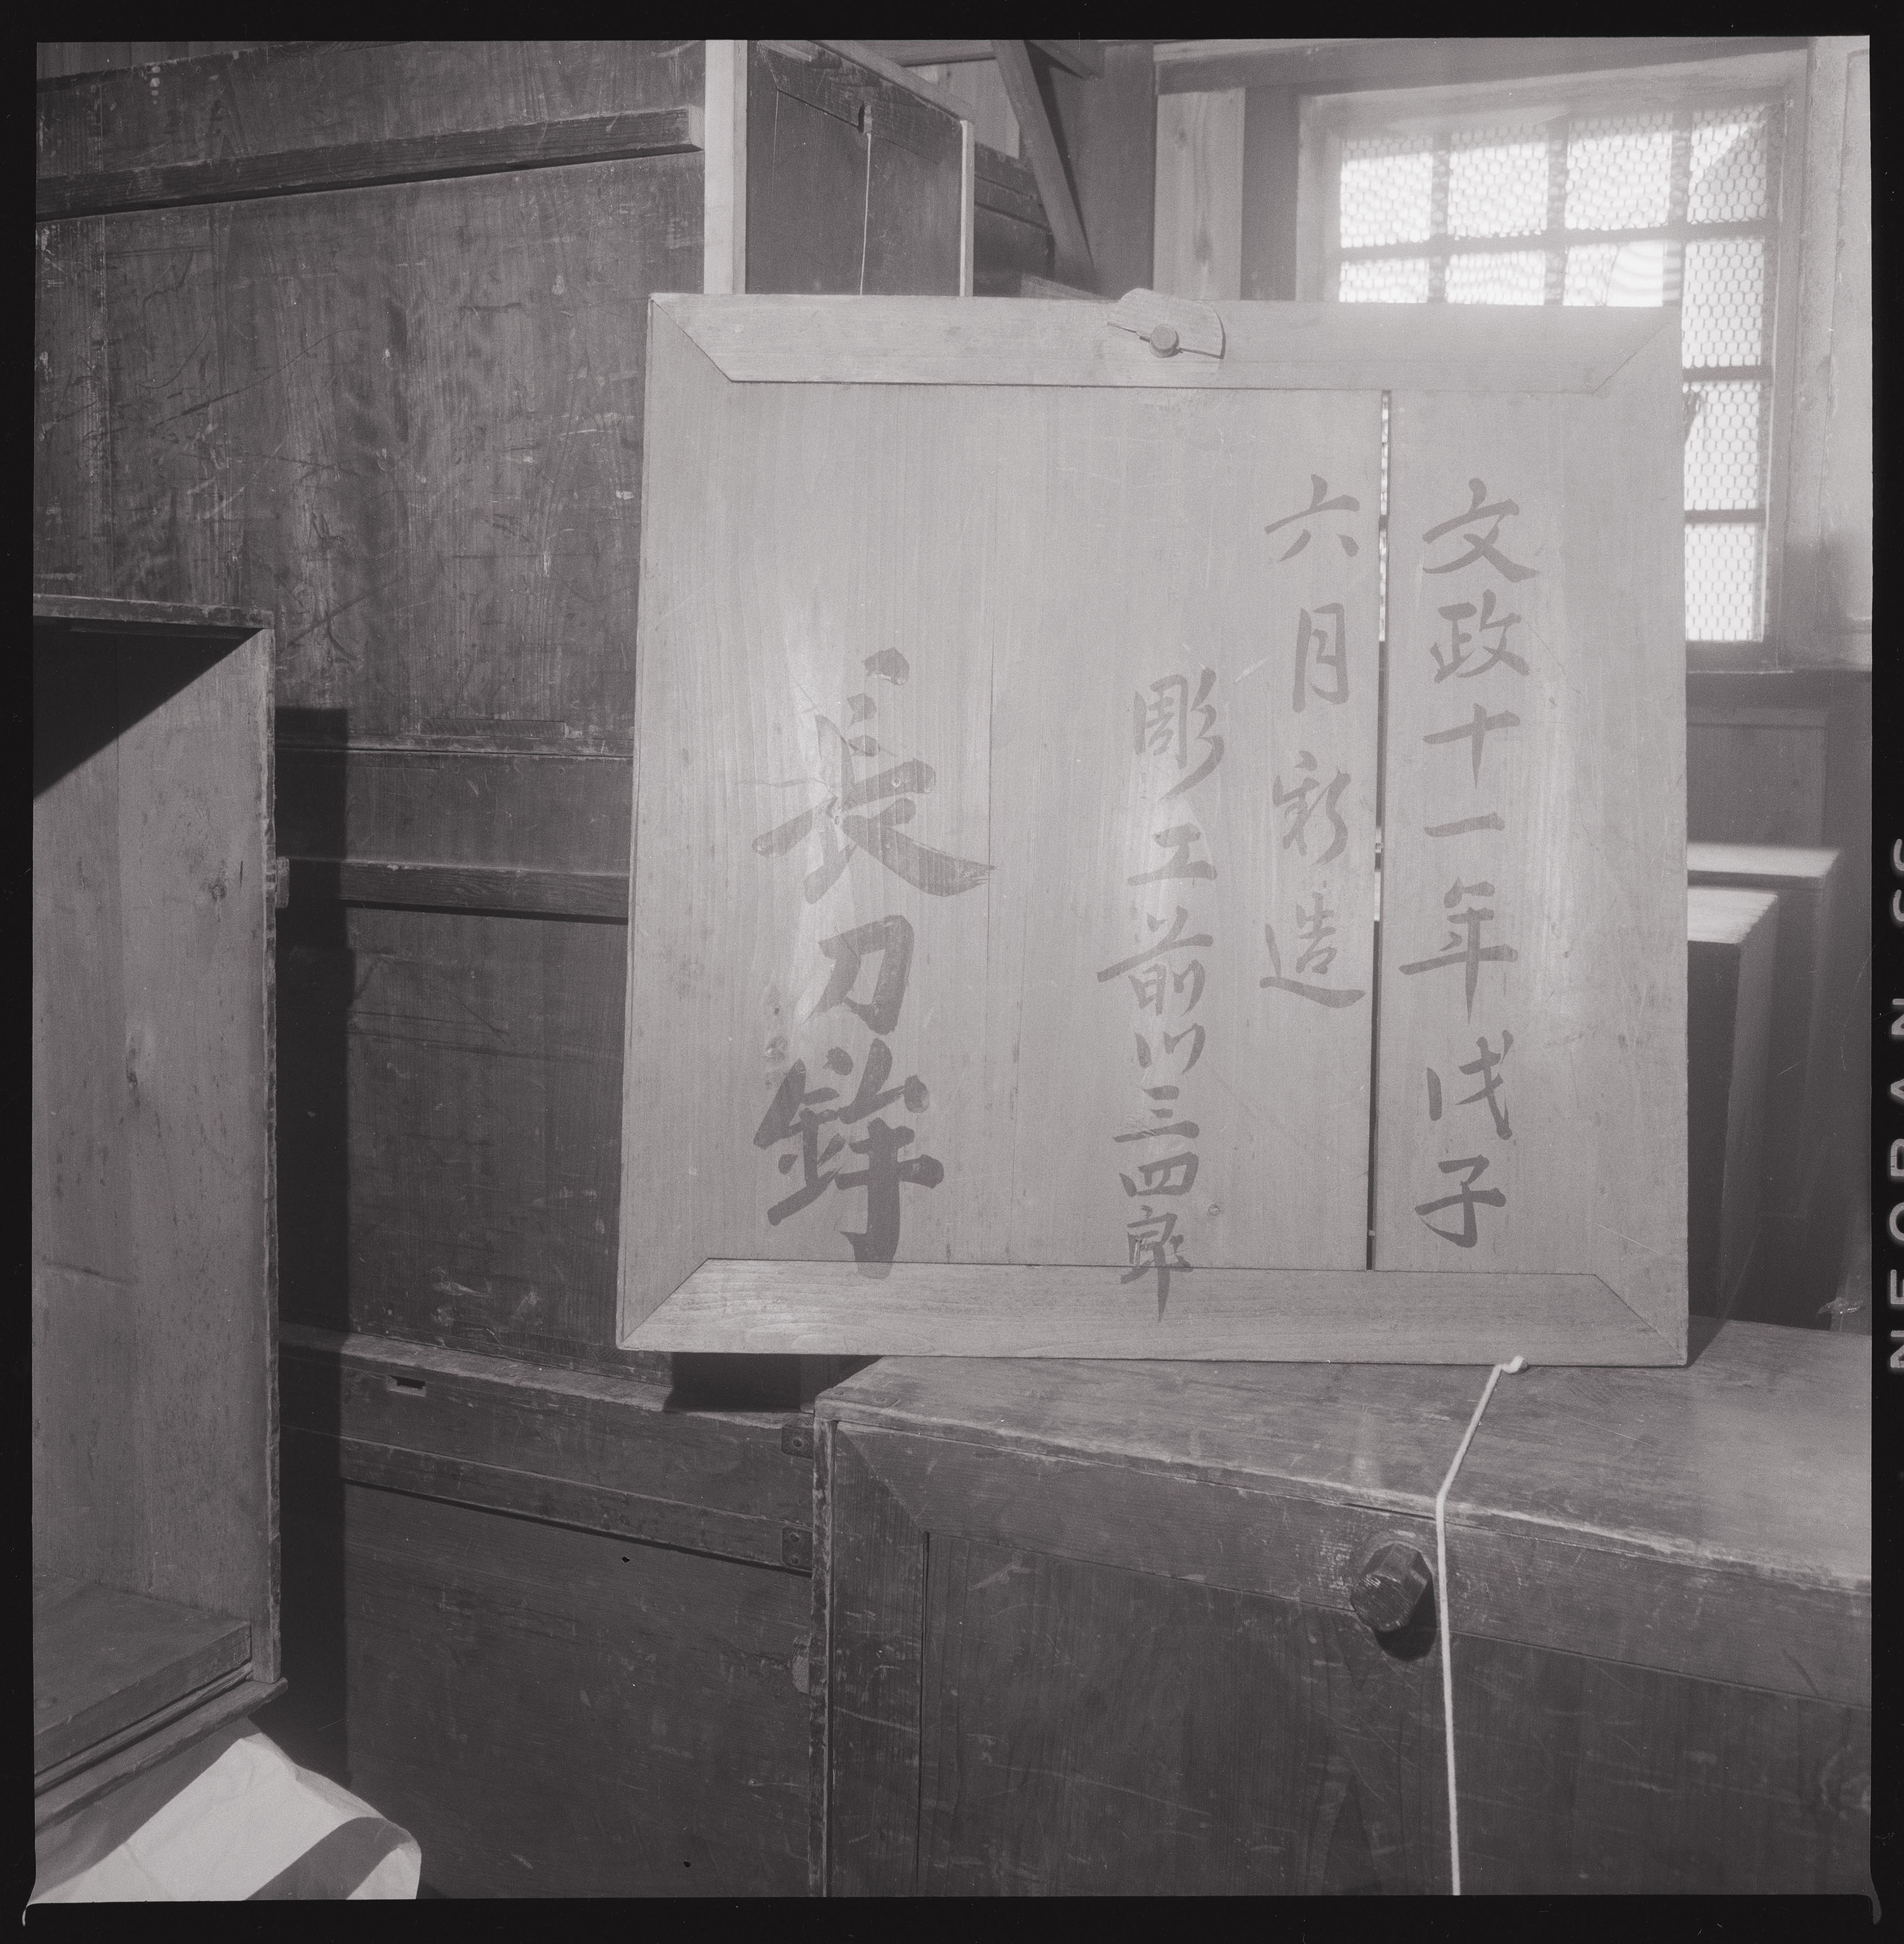 文政十一年戊子
六月彩造
彫工前川三四郎
長刀鉾
NEOPAN SS